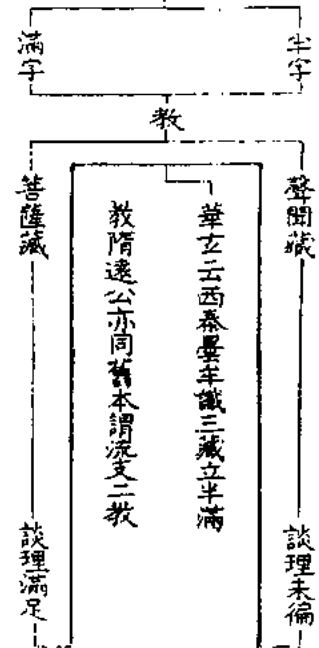 半字
滿字
教
聲聞藏
談理未徧
華玄云西秦曇牟讖三藏立半滿
教隋遠公亦同舊本謂流支二教
菩薩藏
談理滿足